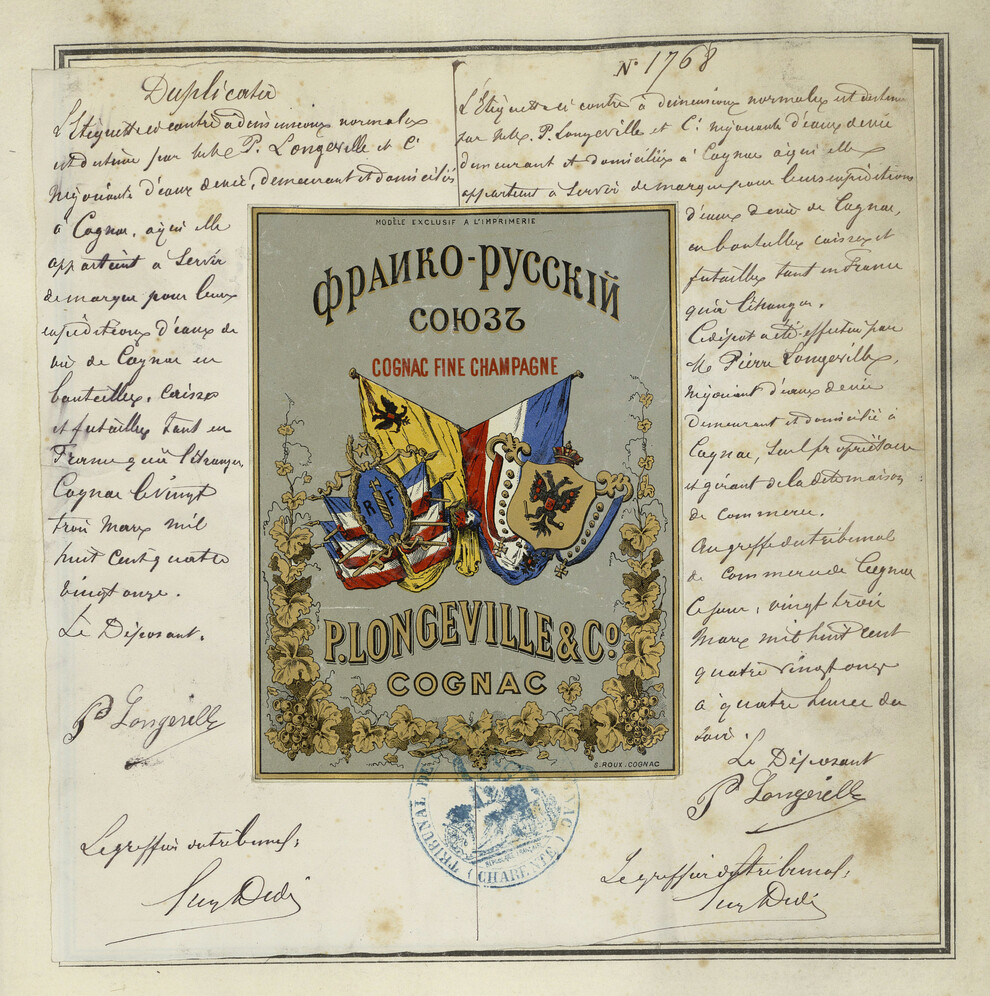 Duplicata
L'Etiquette ci contre à dimensions normales
est destinée par M.M. P. Longeville et Cie
Négociants d'eaux de vie, demeurant et domiciliés
à Cognac, à qui elle
appartient à Servir
de marque pour leurs
expéditions d'eaux de
vie de Cognac en
bouteilles, caisses
et futailles tant en
France qu'à l'étranger.
Cognac le vingt
trois Mars mil
huit cent quatre
vingt onze.
Le Déposant.
P Longeville
Le greffier du tribunal,
N° 1768
L'Etiquette ci contre à dimensions normales est destinée
par M.M. P. Longeville et Cie Négociants d'eaux de vie
demeurant et domiciliés à Cognac à qui elle
appartient à Servir de marque pour leurs expéditions
d'eaux de vie de Cognac,
en bouteilles caisses et
futailles tant en France
qu'à l'étranger.
Ce dépôt a été effectué par
M. Pierre Longeville,
Négociant d'eaux de vie
demeurant et domicilié à
Cognac, Seul propriétaire
et gérant de la dite maison
de commerce.
Au greffe du tribunal
de Commerce de Cognac
Ce jour, vingt trois
Mars mil huit cent
quatre vingt onze
à quatre heures du
soir.
Le Déposant
P Longeville
Le greffier du tribunal,
MODÈLE EXCLUSIF A L'IMPRIMERIE
ФРАИКО-РУССКІЙ
СОЮЗЪ
COGNAC FINE CHAMPAGNE
R F
P. LONGEVILLE & Co
COGNAC
S. ROUX. COGNAC
TRIBUNAL DE
(CHARENTE)